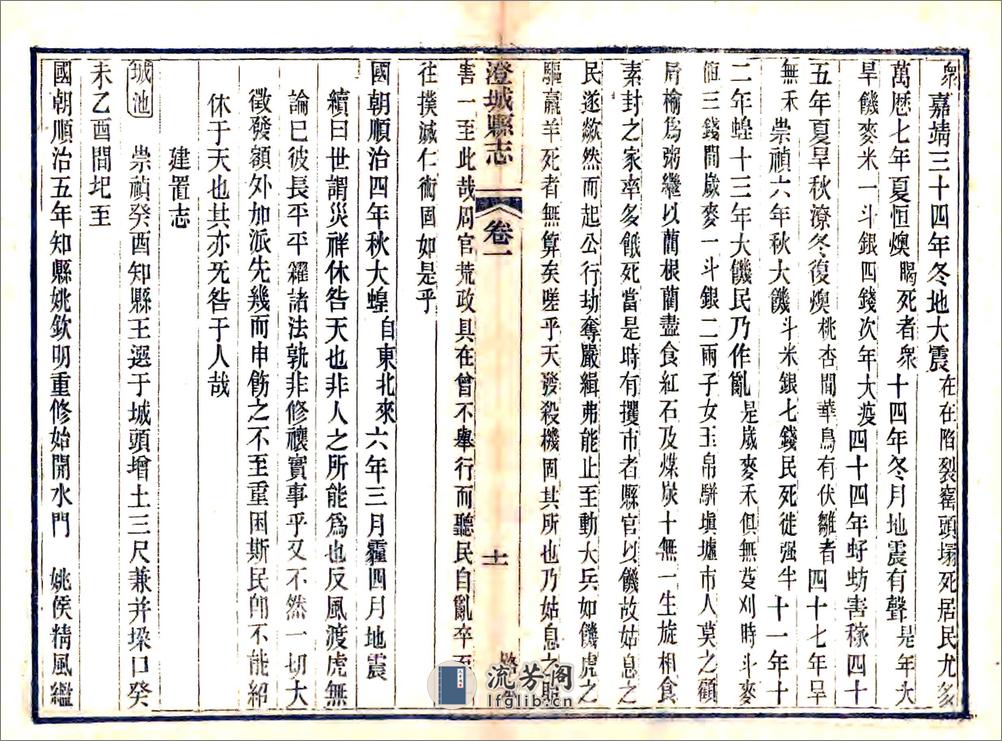 衆 嘉靖三十四年冬地大震在在陷裂窰頭塌死居民尤多
萬歷七年夏恒燠暍死者衆 十四年冬月地震有聲是年大
旱饑麥米一斗銀四錢次年大疫 四十四年虸蚄害稼四十
五年夏旱秋潦冬復燠桃杏間華鳥有伏雛者 四十七年旱
無禾 崇禎六年秋大饑斗米銀七錢民死徙强半 十一年十
二年蝗十三年大饑民乃作亂是歲麥禾俱無芟刈時斗麥
値三錢間歲麥一斗銀二兩子女玉帛駢塡墟市人莫之顧
屑榆爲粥繼以藺根藺盡食紅石及煤炭十無一生旋相食
素封之家率多餓死當是時有攫市者縣官以饑故姑息之
民遂歘然而起公行劫奪嚴緝弗能止至動大兵如饑虎之
驅羸羊死者無算矣嗟乎天發殺機固其所也乃姑息之貽
澄城縣志 卷一 十一
害一至此哉周官荒政具在曾不舉行而聽民自亂卒至
往撲滅仁術固如是乎
國朝順治四年秋大蝗自東北來六年三月霾四月地震
續曰世謂災祥休咎天也非人之所能爲也反風渡虎無
論已彼長平平糴諸法孰非修禳實事乎又不然一切大
徵發額外加派先幾而申飭之不至重困斯民卽不能紹
休于天也其亦死咎于人哉
建置志
城池 崇禎癸酉知縣王選于城頭增土三尺兼并垜口癸
未乙酉間圯至
國朝順治五年知縣姚欽明重修始開水門 姚侯精風鑑
流芳阁
lfglib.cn